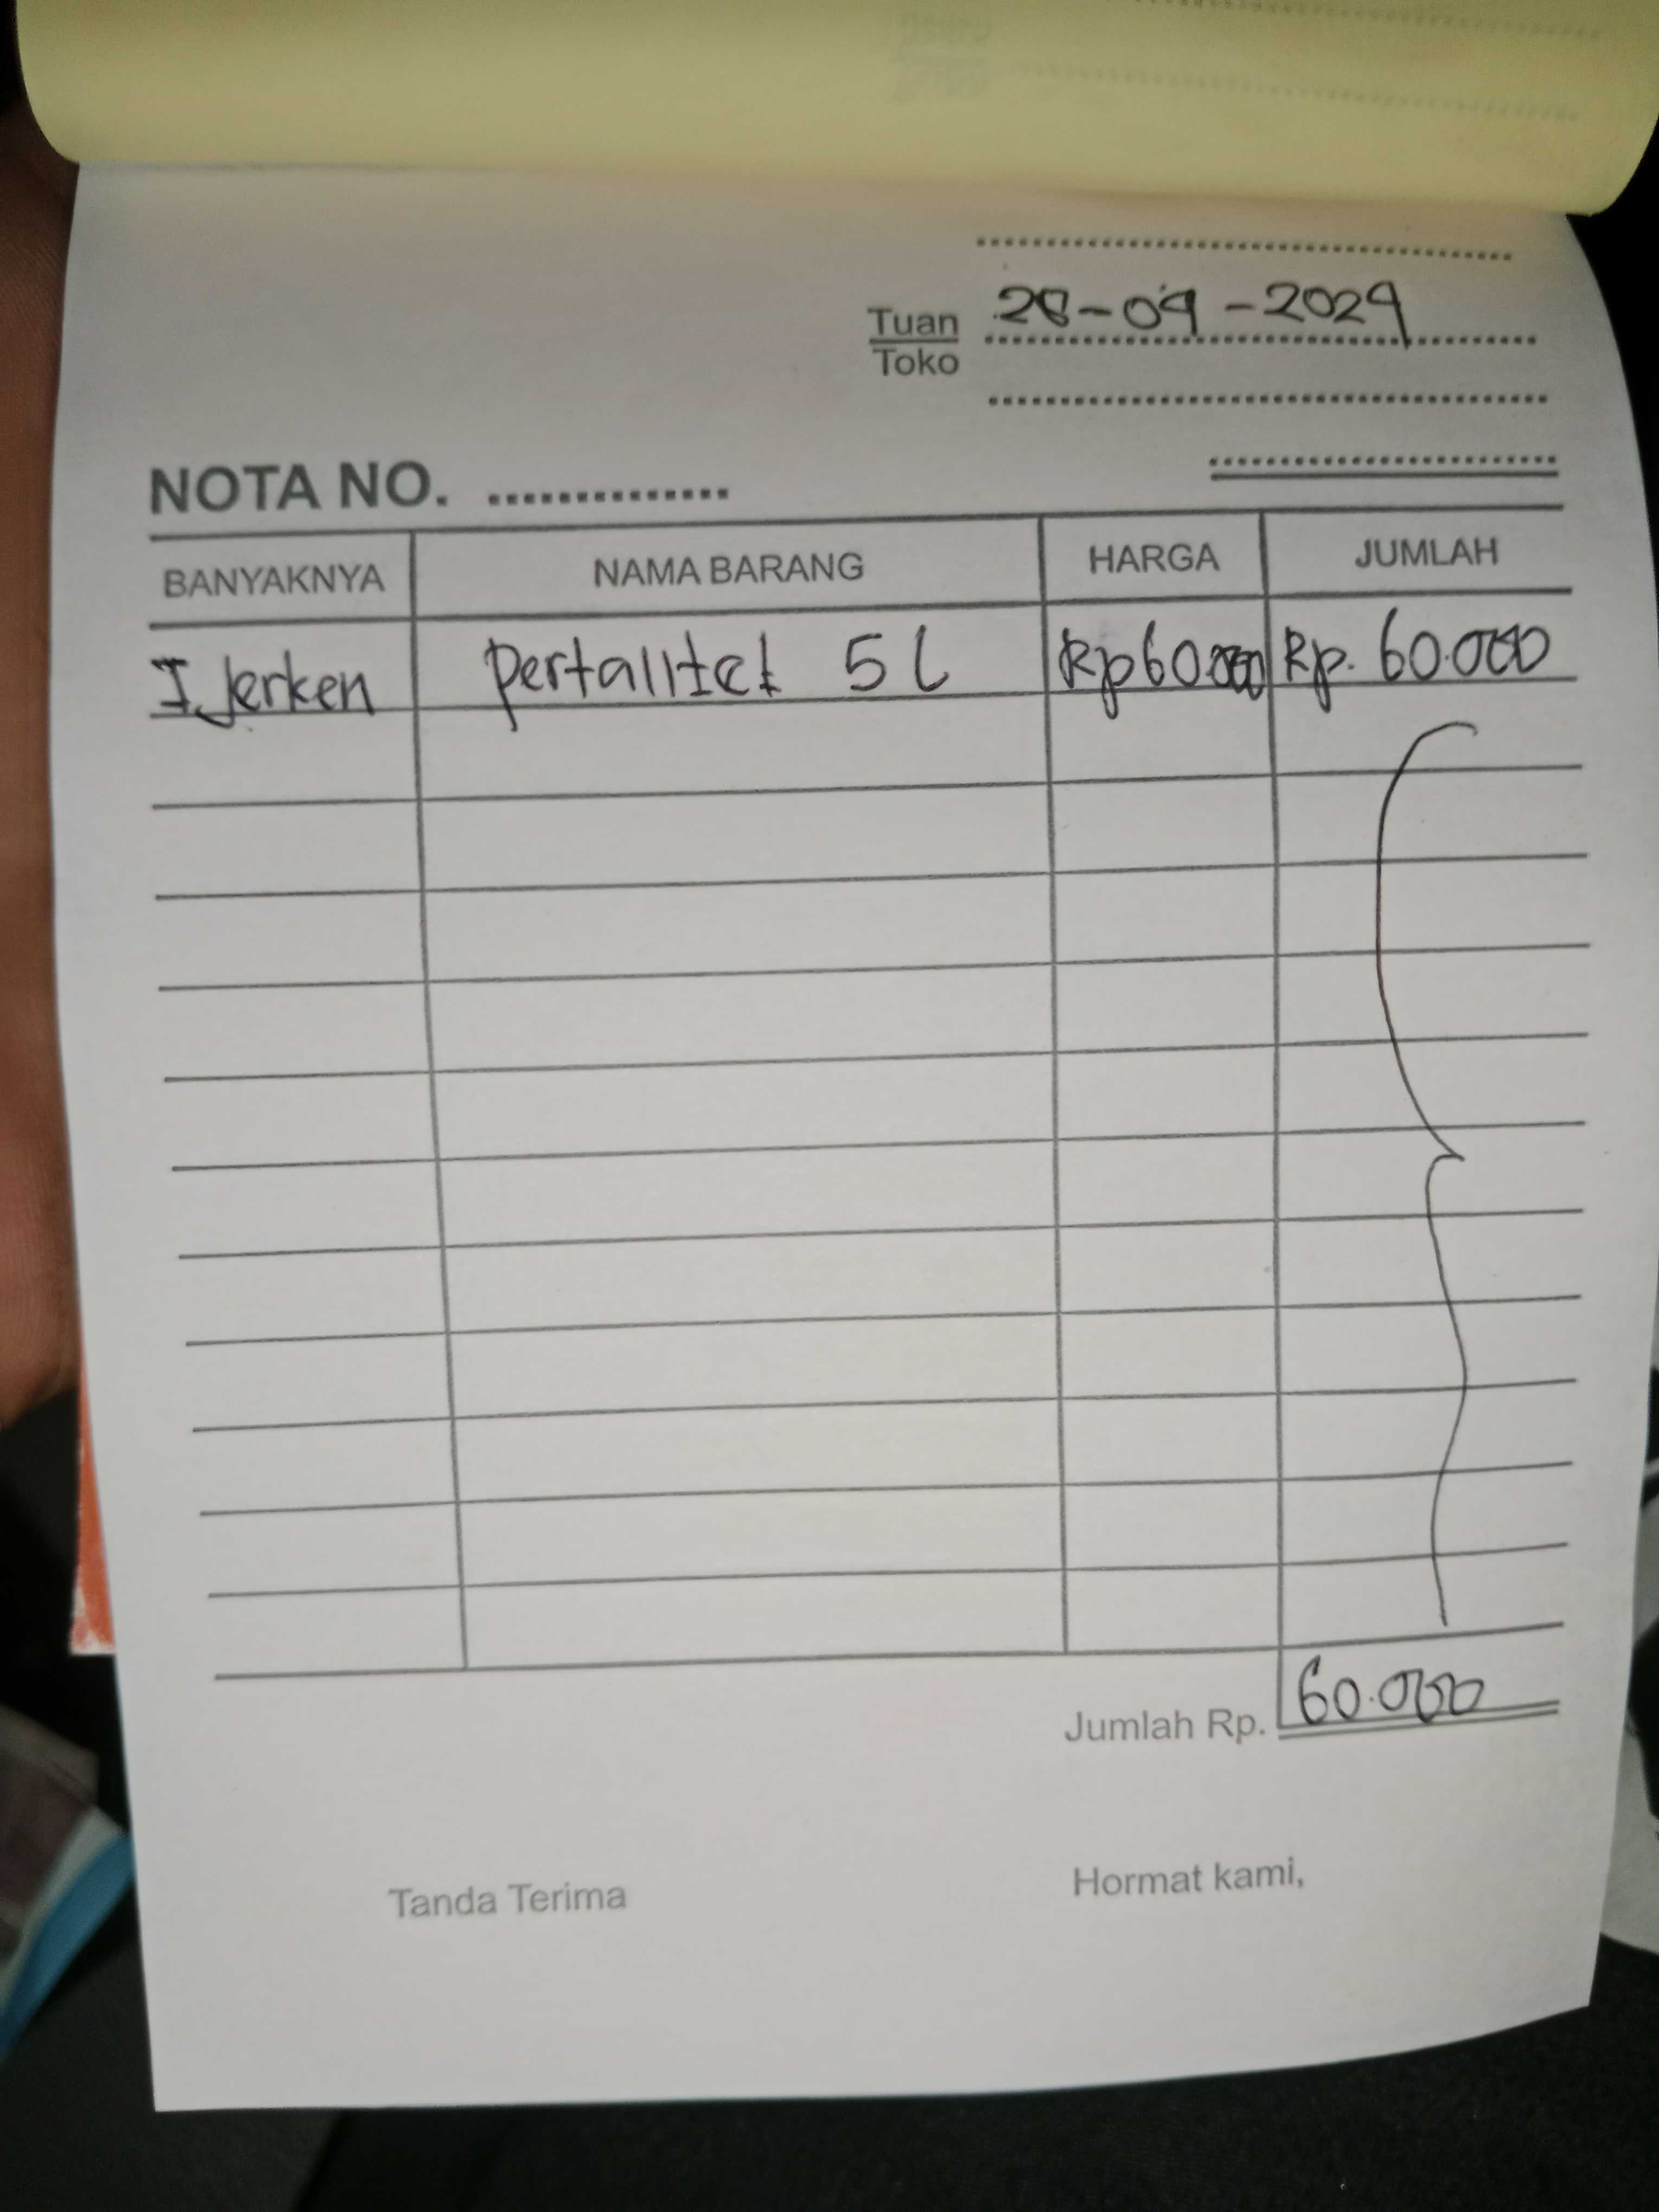 Tuan 28-09-2024
Toko
NOTA NO. ..............
BANYAKNYA NAMA BARANG HARGA JUMLAH
I Jerken pertalitet 5 L Rp 60.000 Rp. 60.000
Jumlah Rp. 60.000
Tanda Terima Hormat kami,